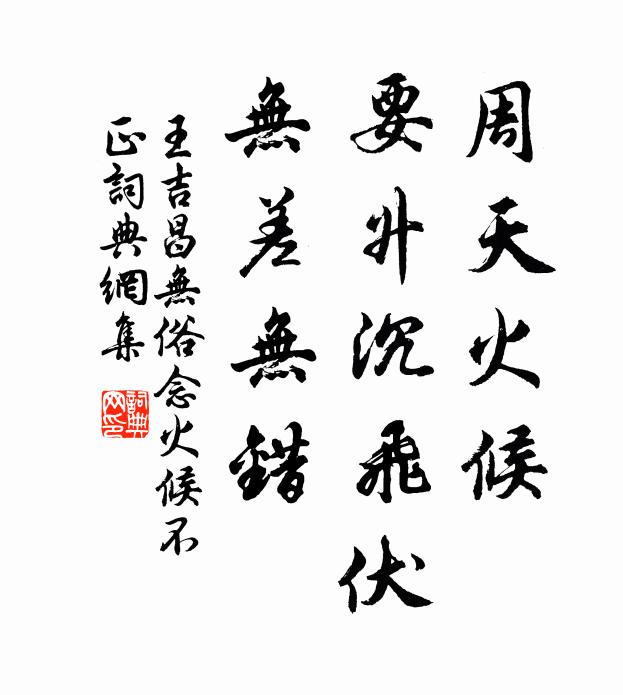 周天火候
要升沉飛伏
無差無錯
王吉昌無俗念火候不
正詞典網集
詞典
网印